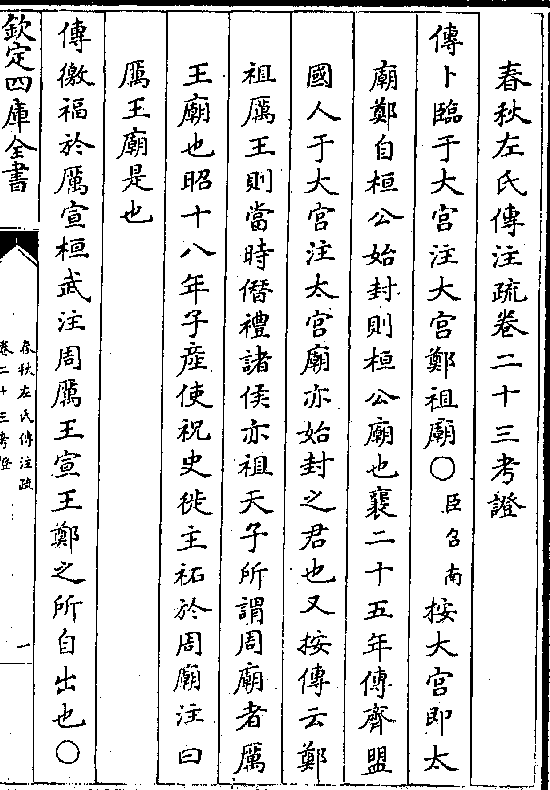 春秋左氏傳注疏卷二十三考證
傳卜臨于大宮注大宮鄭祖廟○臣召南按大宮即太
廟鄭自桓公始封則桓公廟也襄二十五年傳齊盟
國人于大宮注太宮廟亦始封之君也又按傳云鄭
祖厲王則當時僭禮諸侯亦祖天子所謂周廟者厲
王廟也昭十八年子產使祝史徙主祏於周廟注曰
厲王廟是也
傳徼福於厲宣桓武注周厲王宣王鄭之所自出也○
欽定四庫全書
春秋左氏傳注疏
卷二十三考證
一